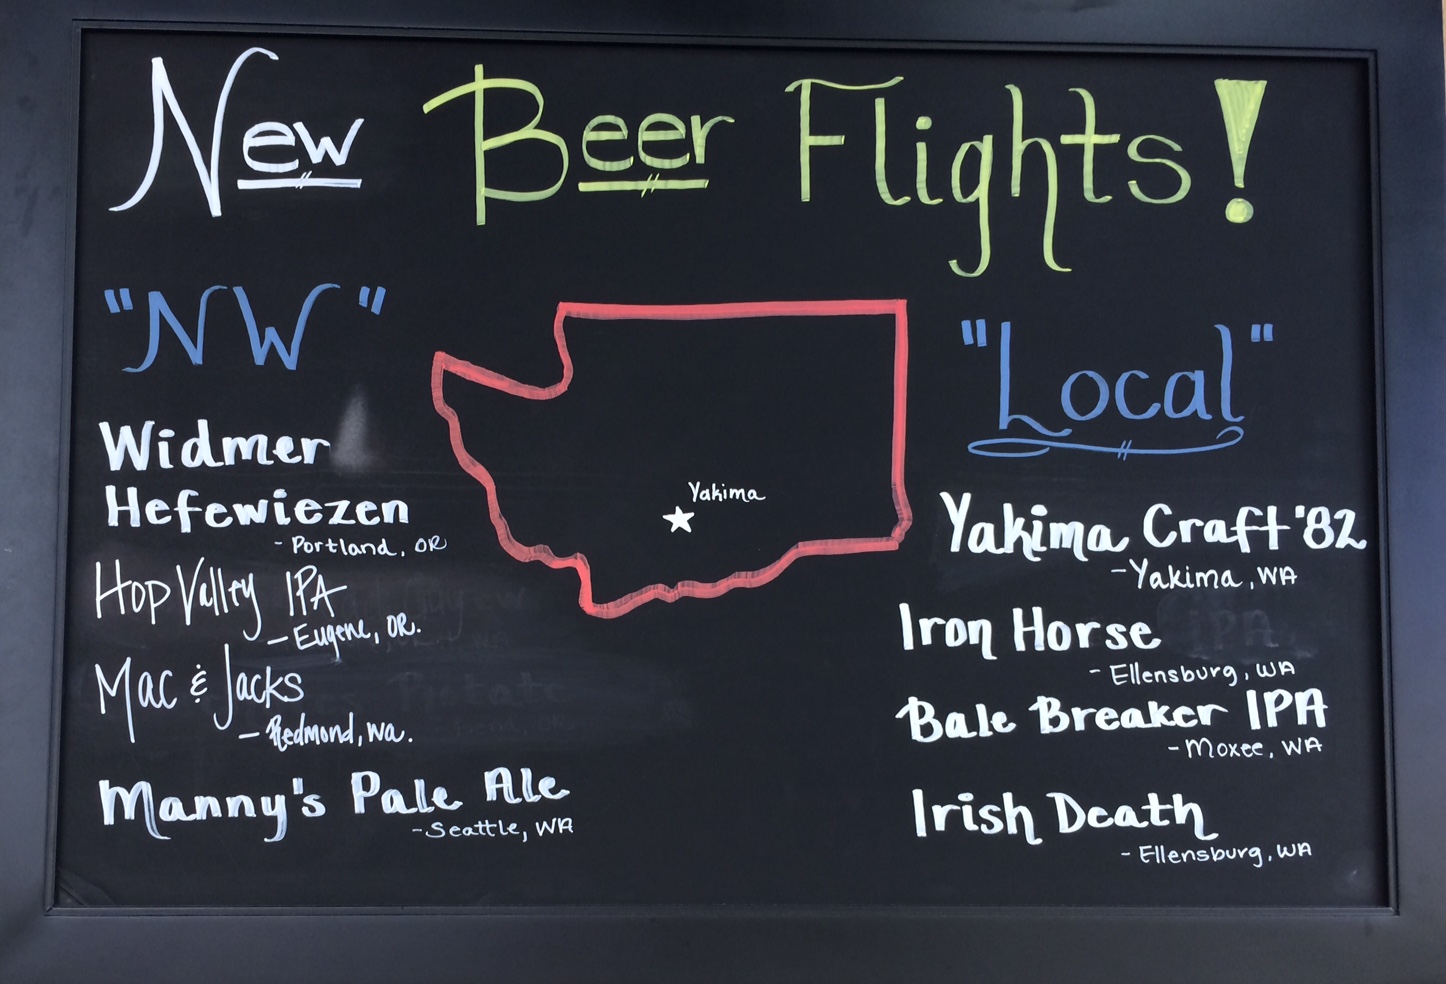 New Beer Flights!
"NW"
Widmer
Hefewiezen
- Portland, OR
Hop Valley IPA
- Eugene, OR.
Mac & Jacks
- Redmond, wa.
Manny's Pale Ale
- Seattle, WA
Yakima
"Local"
Yakima Craft '82
- Yakima, WA
Iron Horse
- Ellensburg, WA
Bale Breaker IPA
- Moxee, WA
Irish Death
- Ellensburg, WA